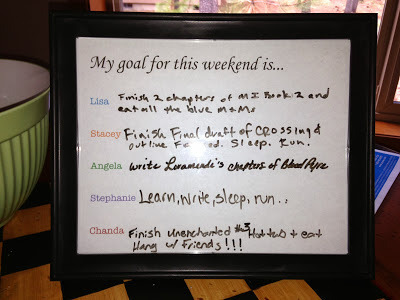 My goal for this weekend is...
Lisa Finish 2 chapters of MI Book 2 and
eat all the blue M&Ms
Stacey Finish Final draft of CROSSING &
outline. Sleep. Run.
Angela write chapters of Blood Pyre
Stephanie Learn, write, sleep, run..
Chanda Finish Unenchanted #3 Hotties & eat
Hang w/ Friends!!!